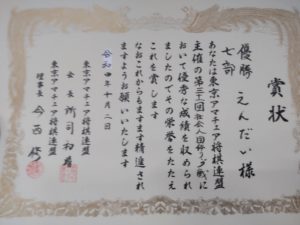 賞状
優勝 えんだい様
七部
あなたは東京アマチュア将棋連盟
主催の第三十一回社会人団体リーグ戦に
おいて優秀な成績を収められ
ましたのでその栄誉をたたえ
これを賞します
なおこれからもますます精進され
ますようお願いいたします
令和四年十月二日
東京アマチュア将棋連盟
会長 所司和晴
東京アマチュア将棋連盟
理事長 今西修